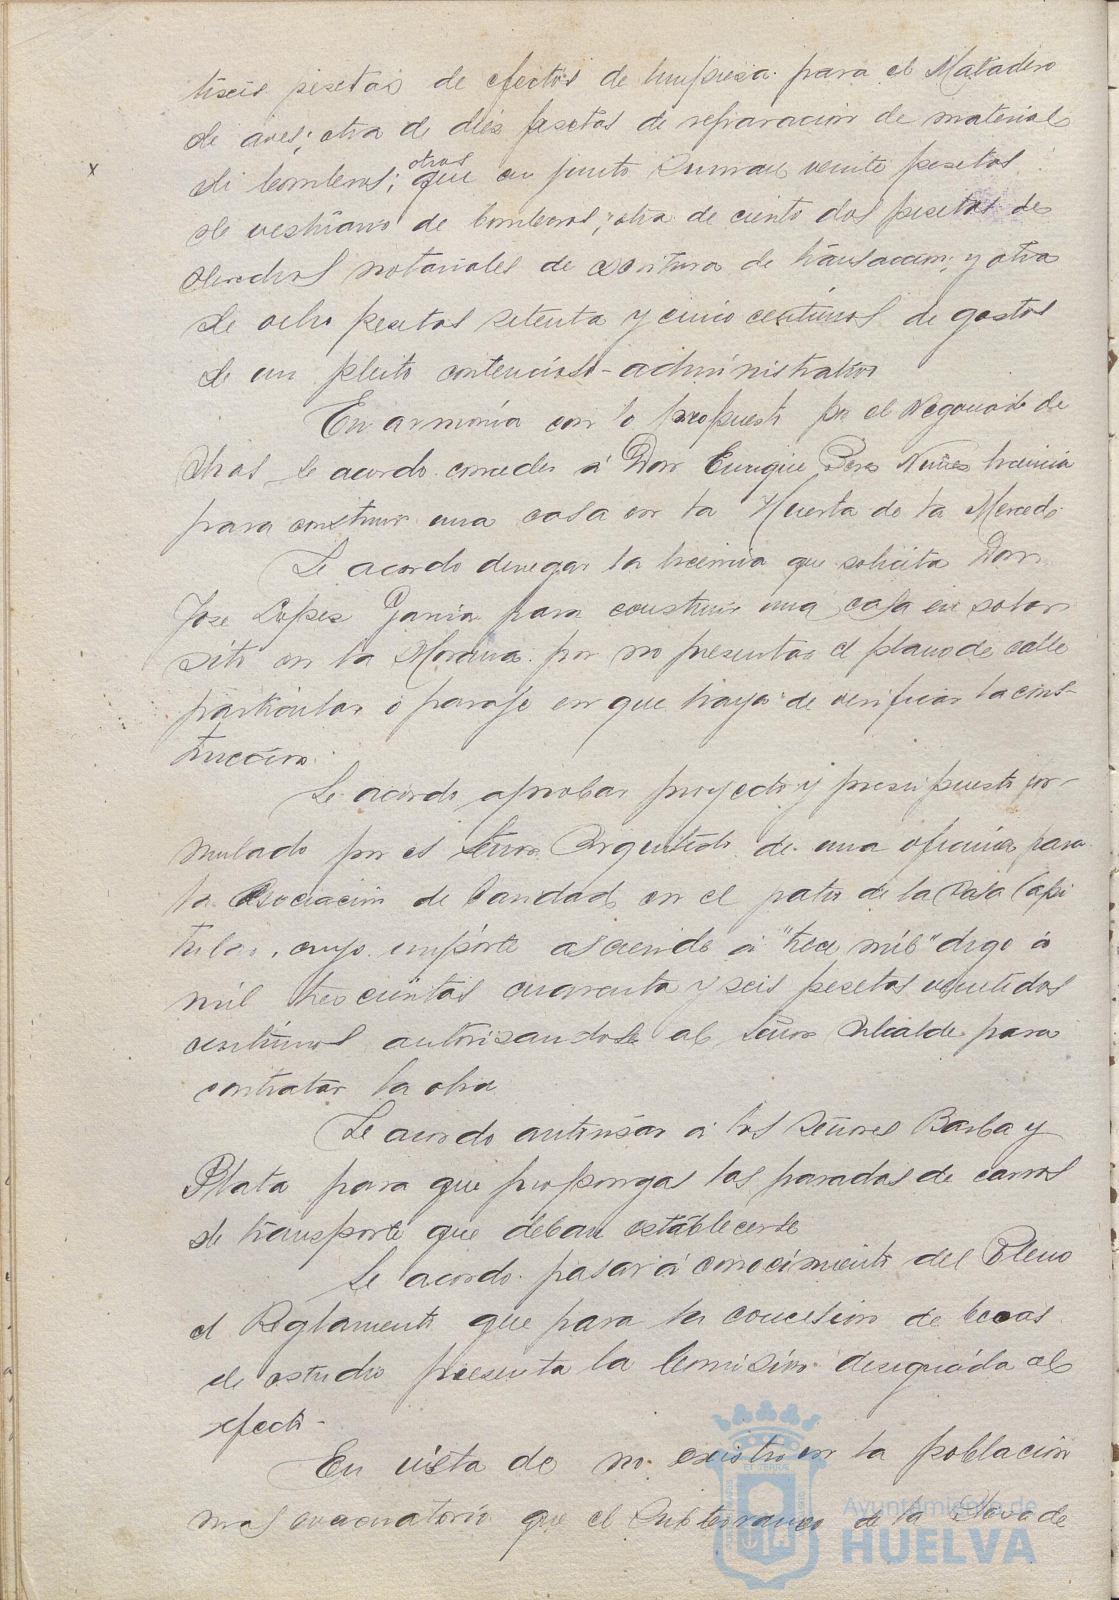 tiseis pesetas de efectos de limpieza para el Matadero
de aves; otra de diez pesetas de reparación de material
de bomberos; otras que en junto suman veinte pesetas
de vestuario de bomberos; otra de ciento dos pesetas de
derechos notariales de escritura de transaccion; y otra
de ocho pesetas setenta y cinco centimos de gastos
de un pleito contencioso-administrativo
En armonia con lo propuesto por el Negociado de
Obras se acordo conceder á Don Enrique Perez Nuñez licencia
para construir una casa en la Huerta de la Merced.
Se acordo denegar la licencia que solicita Don
Jose Lopez Garcia para construir una casa en solar
sito en la Morana por no presentar el plano de calle
particular ó paraje en que haya de verificar la cons-
truccion.
Se acordo aprobar proyecto y presupuesto for-
mulado por el Señor Arquitecto de una oficina para
la Asociacion de Caridad en el patio de la Casa Capi
tular, cuyo importe asciende á "trece mil" digo á
mil trescientas cuarenta y seis pesetas veintidos
centimos autorizandose al Señor Alcalde para
contratar la obra.
Se acordo autorizar á los Señores Barba y
Plata para que propongas las paradas de carros
de transporte que deban establecerse
Se acordo pasar á conocimiento del Pleno
el Reglamento que para la concesion de becas
de estudio presenta la Comision designada al
efecto-
En vista de no existir en la poblacion
mas evacuatorio que el Subterraneo de la Plaza de
Ayuntamiento de
HUELVA